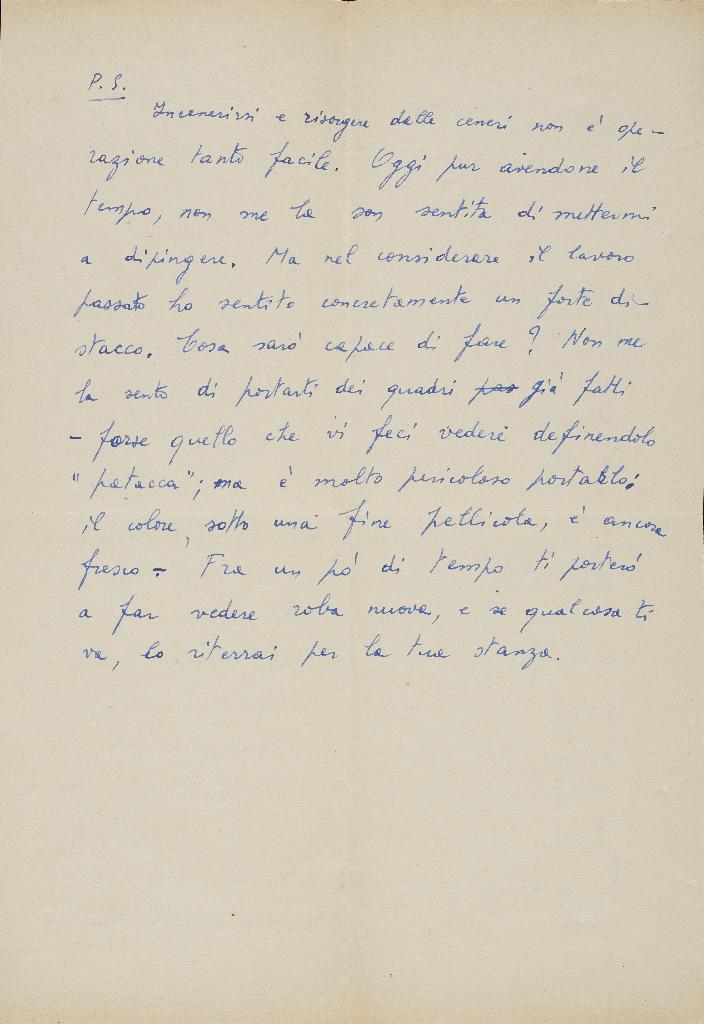 P. S.
Incenerirsi e risorgere dalle ceneri non è ope-
razione tanto facile. Oggi pur avendone il
tempo, non me la son sentita di mettermi
a dipingere. Ma nel considerare il lavoro
passato ho sentito concretamente un forte di-
stacco. Cosa sarò capace di fare? Non me
la sento di portarti dei quadri già fatti
- forse quello che vi feci vedere definendolo
"patacca"; ma è molto pericoloso portarlo:
il colore, sotto una fine pellicola, è ancora
fresco - Fra un pó di tempo ti porteró
a far vedere roba nuova, e se qualcosa ti
va, lo riterrai per la tua stanza.